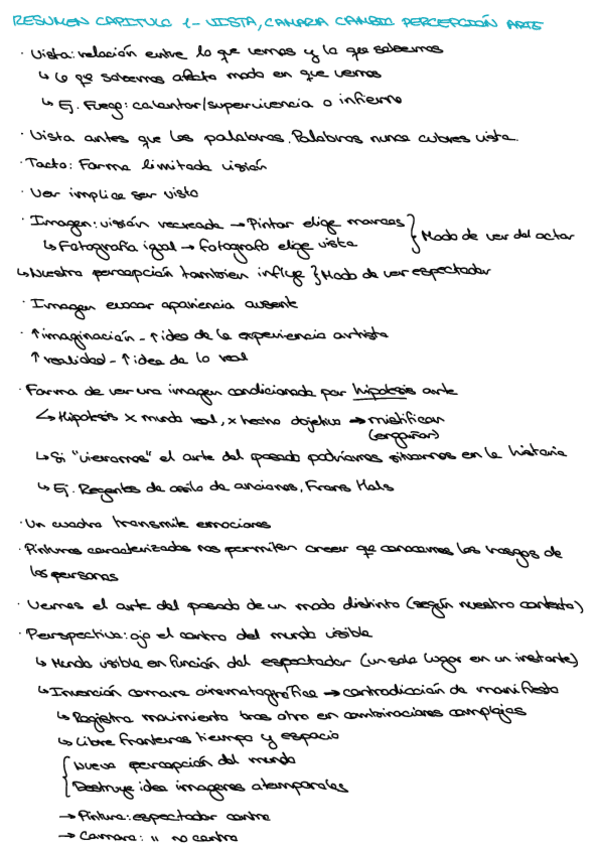 RESUMEN CAPITULO 1 - VISTA, CAMARA CAMBIO PERCEPCIÓN ARTE
· Vista: relación entre lo que vemos y lo que sabemos
↳ Lo que sabemos afecta modo en que vemos
↳ Ej. Fuego: calentar/supervivencia o infierno
· Vista antes que las palabras. Palabras nunca cubres vista.
· Tacto: Forma limitada visión
· Ver implica ser visto
· Imagen: visión recreada → Pintor elige marcas } Modo de ver del actor
↳ Fotografía igual → fotografo elige vista
↳ Nuestra percepción tambien influye } Modo de ver espectador
· Imagen evocar apariencia ausente
· ↑ imaginación - ↑ idea de la experiencia artista
↑ realidad - ↑ idea de lo real
· Forma de ver una imagen condicionada por hipotesis arte
↳ Hipotesis x mundo real, x hecho objetivo → mistificar
(engañar)
↳ Si "vieramos" el arte del pasado podríamos situarnos en la historia
↳ Ej. Regentes de asilo de ancianos, Frans Hals
· Un cuadro transmite emociones
· Pinturas caracterizadas nos permiten creer qe conocemos los rasgos de
las personas
· Vemos el arte del pasado de un modo distinto (según nuestro contexto)
· Perspectiva: ojo el centro del mundo visible
↳ Mundo visible en función del espectador (un solo lugar en un instante)
↳ Invención camara cinematográfica → contradicción de manifiesto
↳ Registra movimiento tras otro en combinaciones complejas
↳ Libre fronteras tiempo y espacio
{ Nueva percepción del mundo
Destruye idea imagenes atemporales
→ Pintura: espectador centro
→ Camara: " no centro